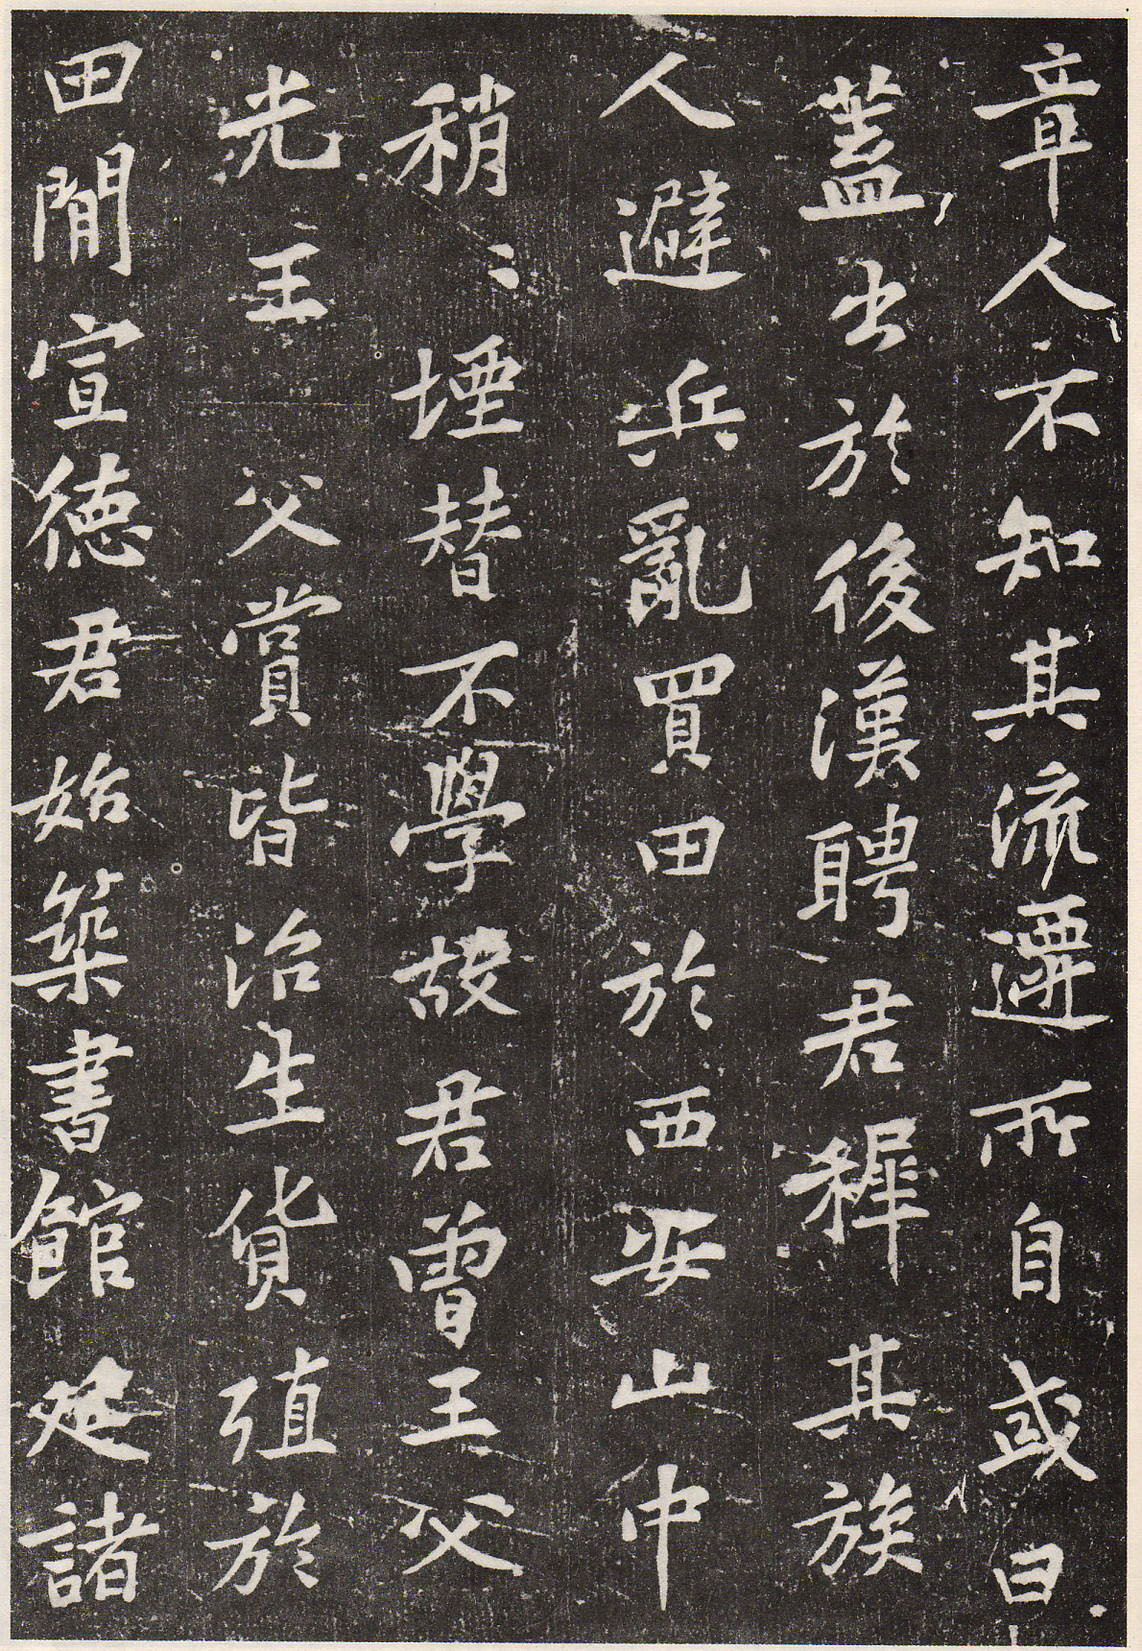 章人不知其流遷所自或曰
蓋出於後漢聘君穉其族
人避兵亂買田於西安山中
稍〻堙替不學故君曾王父
光王父賞皆治生貨殖於
田閒宣德君始築書館延諸